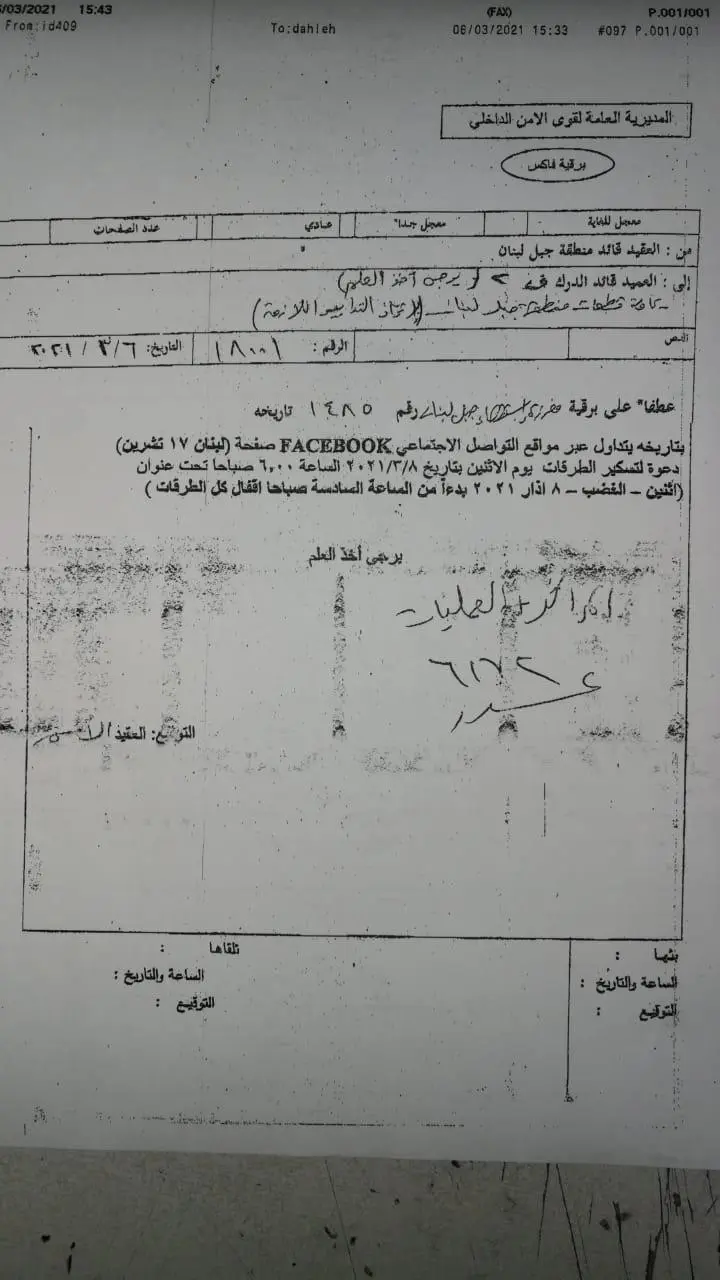 /03/2021 15:43 (FAX) P.001/001
From:id409 To:dahleh 06/03/2021 15:33 #097 P.001/001
المديرية العامة لقوى الامن الداخلي
برقية فاكس
معجل للغاية معجل جدا" عادي عدد الصفحات
من : العقيد قائد منطقة جبل لبنان
إلى : العميد قائد الدرك يرجى أخذ العلم)
كافة قطعات منطقة جبل لبنان (لاتخاذ التدابير اللازمة)
النص الرقم : ١٨٠٠١ التاريخ: ٦ / ٣ / ٢٠٢١
عطفا" على برقية جبل لبنان رقم ١٤٨٥ تاريخه
بتاريخه يتداول عبر مواقع التواصل الاجتماعي FACEBOOK صفحة (لبنان ١٧ تشرين)
دعوة لتسكير الطرقات يوم الاثنين بتاريخ ٢٠٢١/٣/٨ الساعة ٦,٠٠ صباحا تحت عنوان
(اثنين – الغضب – ٨ اذار ٢٠٢١ بدءاً من الساعة السادسة صباحا اقفال كل الطرقات )
يرجى أخذ العلم
العمليات
٦١٧٢
التوقيع: العقيد
بثها : تلقاها :
الساعة والتاريخ : الساعة والتاريخ :
التوقيع : التوقيع :